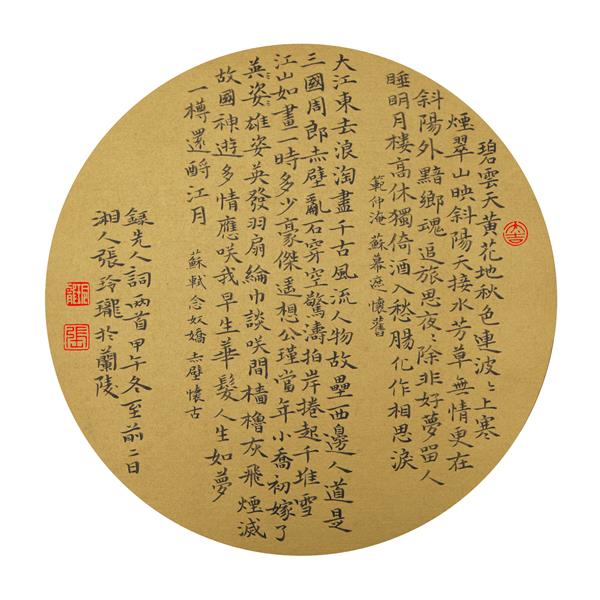 碧雲天黄花地秋色連波〻上寒
煙翠山映斜陽天接水芳草無情更在
斜陽外黯鄉魂追旅思夜〻除非好夢畱人
睡明月樓高休獨倚酒入愁腸化作相思淚
範仲淹蘇幕遮懷舊
大江東去浪淘盡千古風流人物故壘西邊人道是
三國周郎赤壁亂石穿空驚濤拍岸捲起千堆雪
江山如畫一時多少豪傑遥想公瑾當年小喬初嫁了
英姿雄姿英發羽扇綸巾談咲間檣櫓灰飛煙滅
故國神遊多情應咲我早生華髮人生如夢
一樽還酹江月
蘇軾念奴嬌赤壁懷古
錄先人詞兩首甲午冬至前二日
湘人張玲瓏於蘭陵